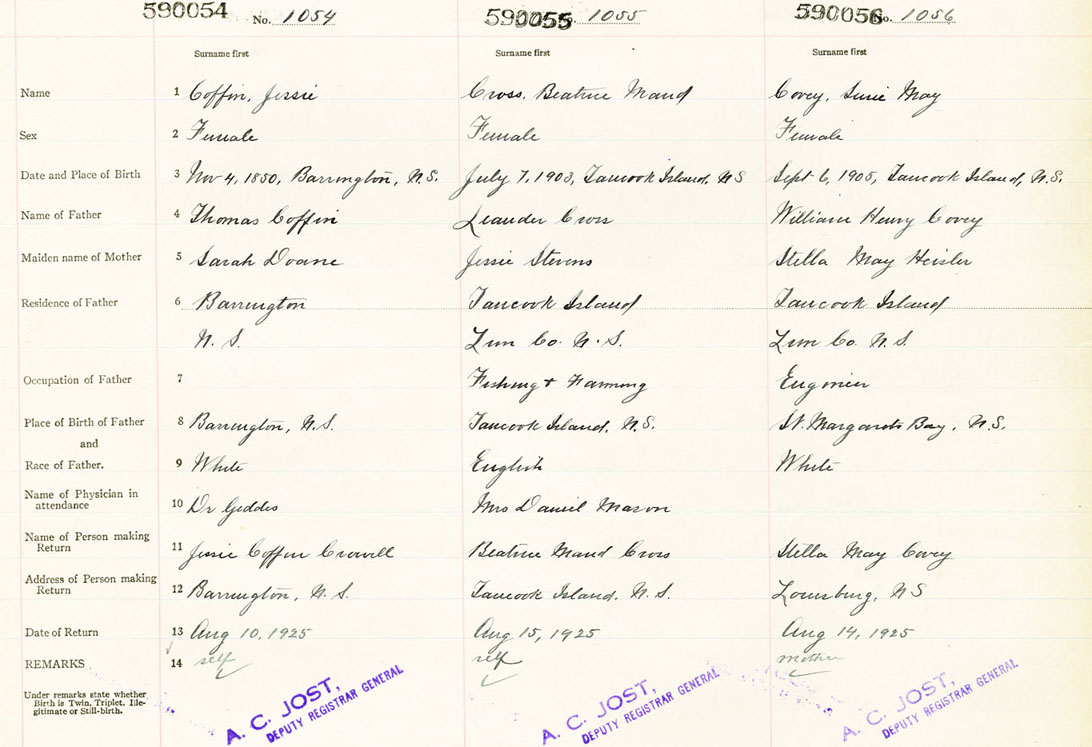 590054 No. 1054 590055 No. 1055 590056 No. 1056
Surname first Surname first Surname first
Name 1 Coffin, Jessie Cross, Beatrice Maud Covey, Susie May
Sex 2 Female Female Female
Date and Place of Birth 3 Nov 4, 1850, Barrington, N.S. July 7, 1903, Tancook Island, NS Sept 6, 1905, Tancook Island, N.S.
Name of Father 4 Thomas Coffin Leander Cross William Henry Covey
Maiden name of Mother 5 Sarah Doane Jessie Stevens Stella May Heisler
Residence of Father 6 Barrington Tancook Island Tancook Island
N. S. Lun Co. N. S. Lun Co. N. S.
Occupation of Father 7 Fishing + Farming Engineer
Place of Birth of Father 8 Barrington, N.S. Tancook Island, N.S. St. Margarets Bay, N.S.
and
Race of Father. 9 White English White
Name of Physician in
attendance 10 Dr Geddes Mrs Daniel Mason
Name of Person making
Return 11 Jessie Coffin Crowell Beatrice Maud Cross Stella May Covey
Address of Person making
Return 12 Barrington, N. S. Tancook Island, N. S. Louisburg, NS
Date of Return 13 Aug 10, 1925 Aug 15, 1925 Aug 14, 1925
REMARKS 14 self self mother
Under remarks state whether
Birth is Twin, Triplet, Ille-
gitimate or Still-birth.
A. C. JOST, A. C. JOST, A. C. JOST,
DEPUTY REGISTRAR GENERAL DEPUTY REGISTRAR GENERAL DEPUTY REGISTRAR GENERAL